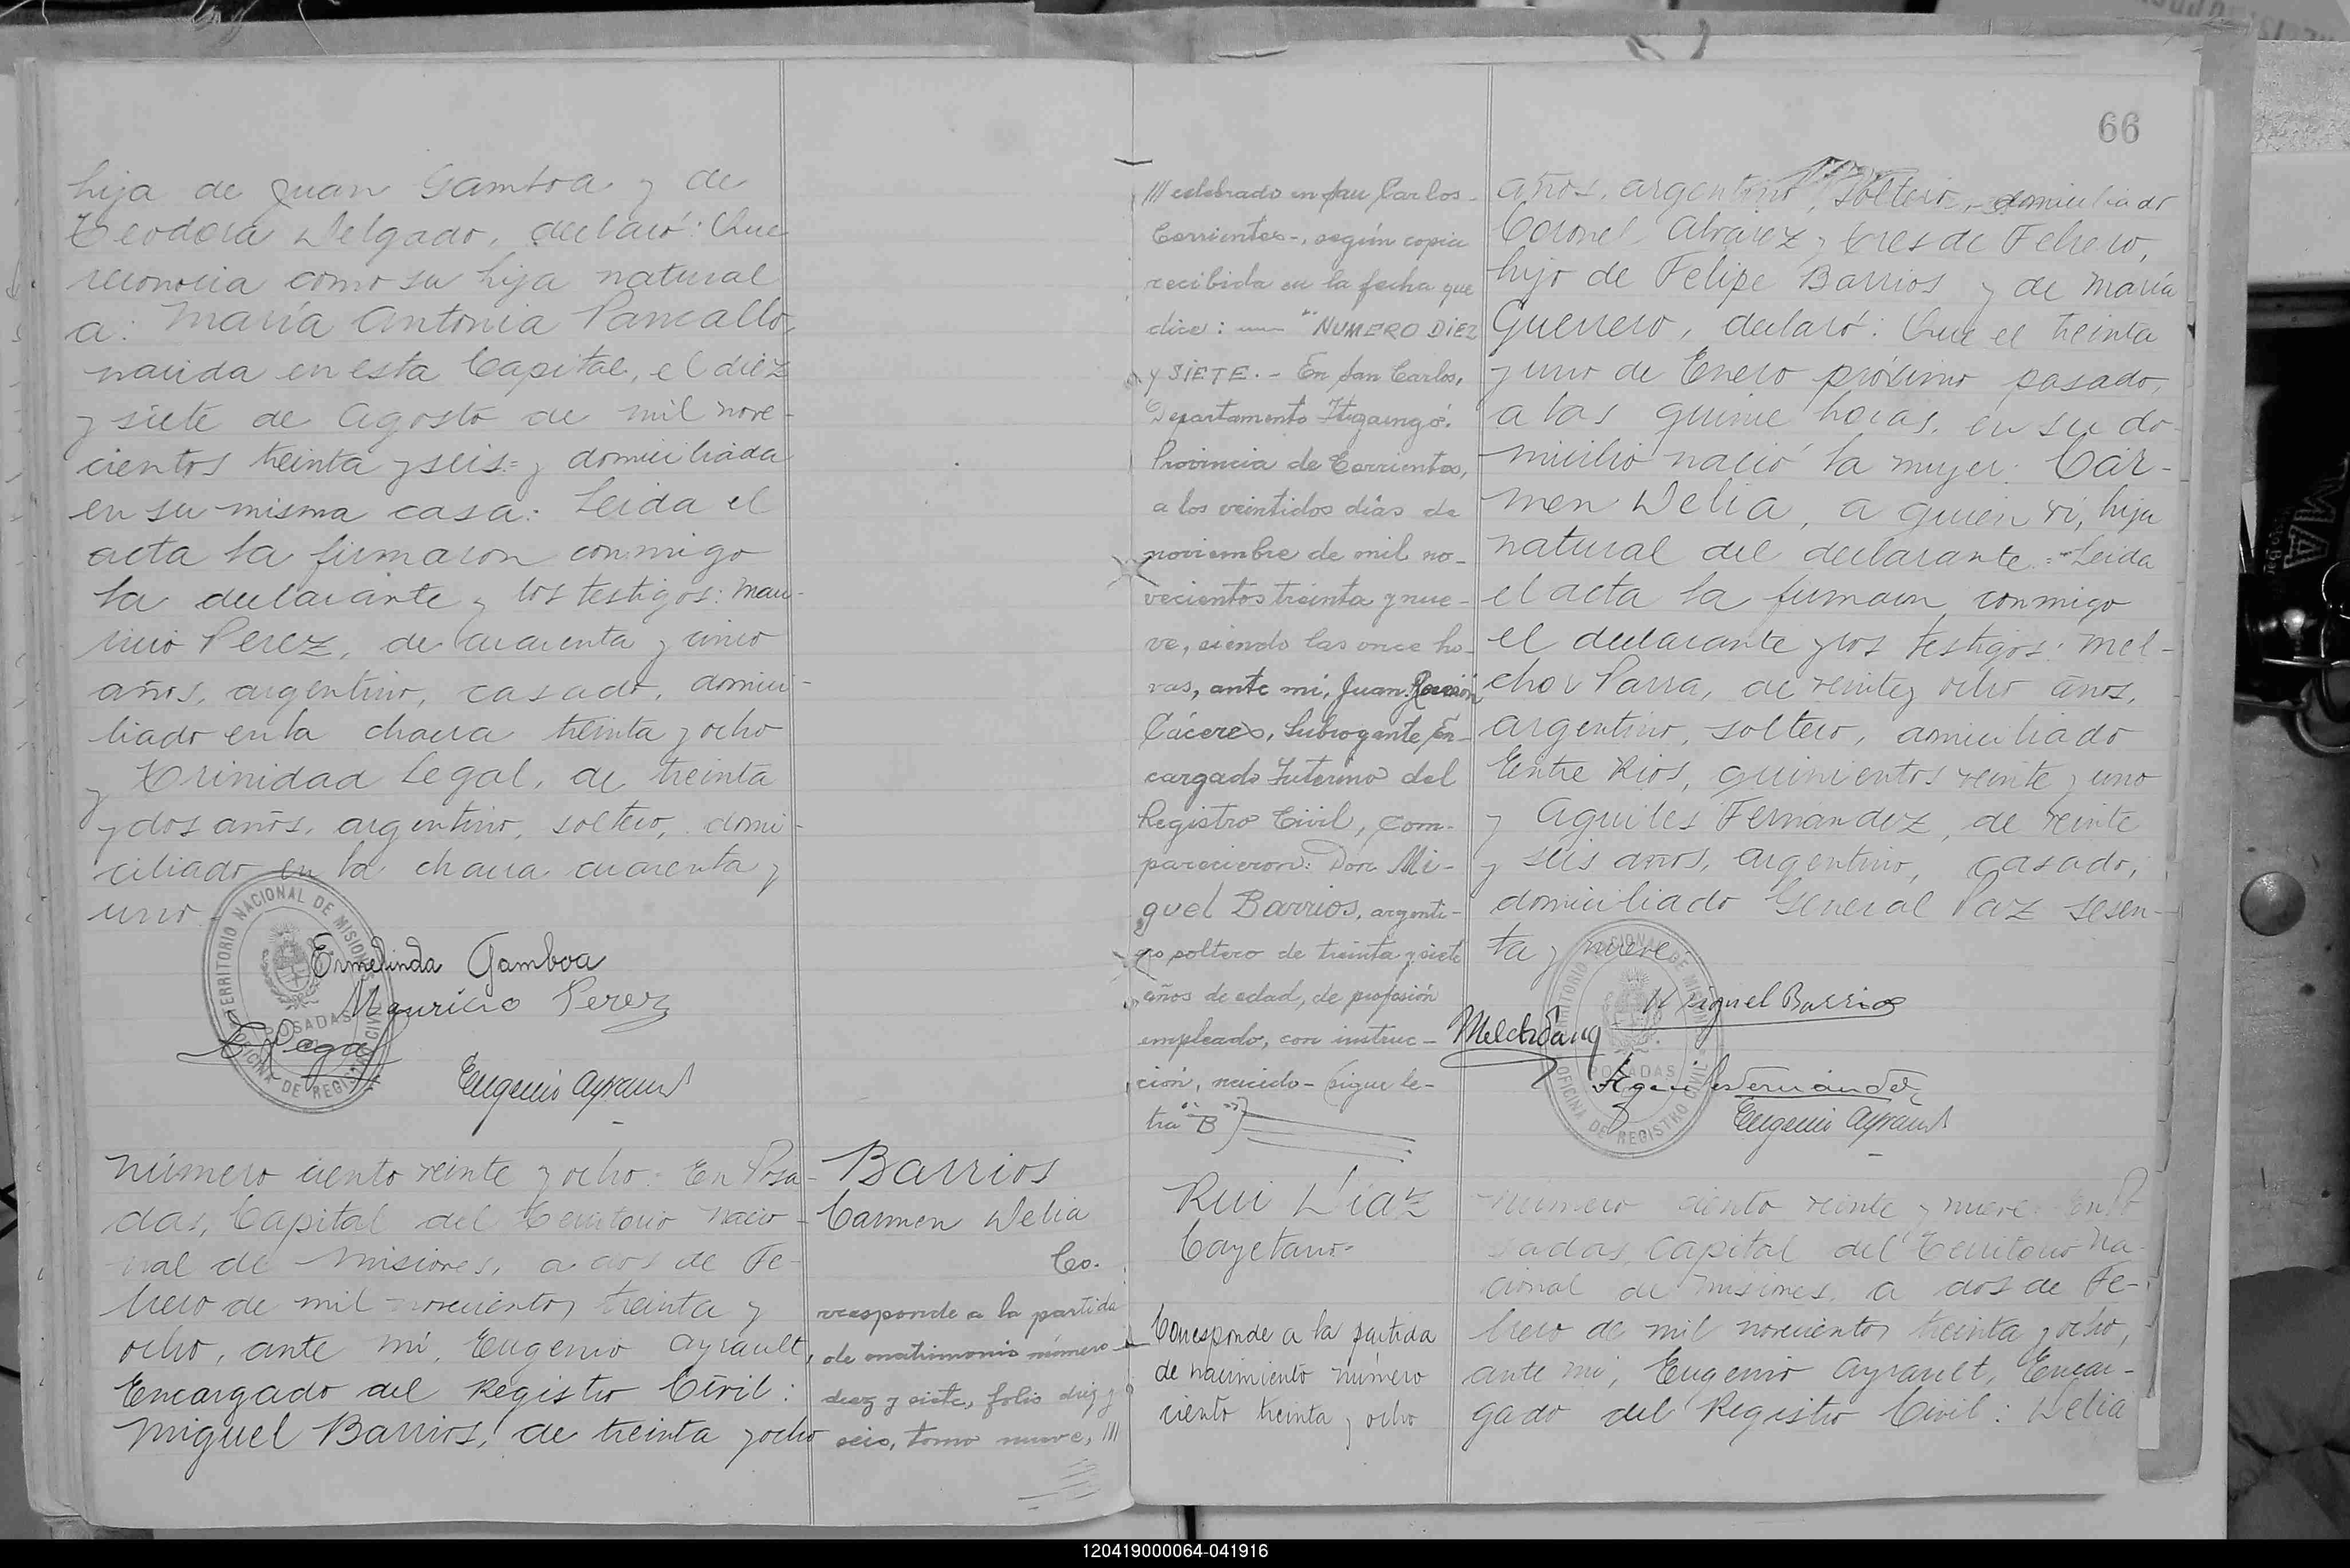 hija de Juan Gamboa y de
Teodora Delgado, declaró: Que
reconocia como su hija natural
a: María Antonia Pancallo,
nacida en esta Capital, el diez
y siete de Agosto de mil nove-
cientos treinta y seis = y domiciliada
en su misma casa: Leida el
acta la firmaron conmigo
la declarante y los testigos: Mau-
ricio Perez, de cuarenta y cinco
años, argentino, casado, domici-
liado en la chacra treinta y ocho
y Trinidad Legal, de treinta
y dos años, argentino, soltero, domi-
ciliado en la chacra cuarenta y
uno.
TERRITORIO NACIONAL DE MISIONES
POSADAS
OFICINA DE REGISTRO CIVIL
Ermelinda Gamboa
Mauricio Perez
Eugenio Ayrault
Número ciento veinte y ocho: En Posa-
das, Capital del Territorio Nacio-
nal de Misiones, a dos de Fe-
brero de mil novecientos treinta y
ocho, ante mí, Eugenio Ayrault,
Encargado del Registro Civil:
Miguel Barrios, de treinta y ocho
Barrios
Carmen Delia
Co-
rresponde a la partida
de matrimonio número
diez y siete, folio diez y
seis, tomo nueve, ///
/// celebrado en San Carlos -
Corrientes-, según copia
recibida en la fecha que
dice: "NUMERO DIEZ
y SIETE.- En San Carlos,
Departamento Ituzaingó,
Provincia de Corrientes,
a los veintidos días de
noviembre de mil no-
vecientos treinta y nue-
ve, siendo las once ho-
ras, ante mí, Juan Ramón
Cáceres, Subrogante En-
cargado Interino del
Registro Civil, com-
parecieron: Don Mi-
guel Barrios, argenti-
no soltero de treinta y siete
años de edad, de profesión
empleado, con instruc-
ción, nacido - (sigue le-
tra "B")
Rui Diaz
Cayetano-
Corresponde a la partida
de nacimiento número
ciento treinta y ocho
66
años, argentino, soltero, domiciliado
Coronel Alvarez y tres de Febrero,
hijo de Felipe Barrios y de María
Guerrero, declaró: Que el treinta
y uno de Enero próximo pasado,
a las quince horas, en su do-
micilio nació la mujer: Cár-
men Delia, a quien ví, hija
natural del declarante = Leida
el acta la firmaron conmigo
el declarante y los testigos: Mel-
chor Parra, de veinte y ocho años,
argentino, soltero, domiciliado
Entre Rios, quinientos veinte y uno
y Aquiles Fernandez, de veinte
y seis años, argentino, casado,
domiciliado General Paz sesen-
ta y nueve
TERRITORIO NACIONAL DE MISIONES
POSADAS
OFICINA DE REGISTRO CIVIL
Miguel Barrios
Eugenio Ayrault
Número ciento veinte y nueve: En Po-
sadas, Capital del Territorio Na-
cional de Misiones, a dos de Fe-
brero de mil novecientos treinta y ocho,
ante mí, Eugenio Ayrault, Encar-
gado del Registro Civil: Delia
120419000064-041916